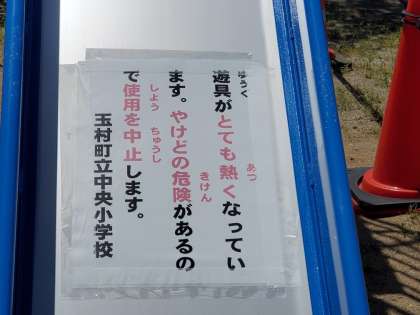 遊具がとても熱くなってい
ます。やけどの危険があるの
で使用を中止します。
玉村町立中央小学校
ゆうぐ
あつ
きけん
しよう
ちゅうし